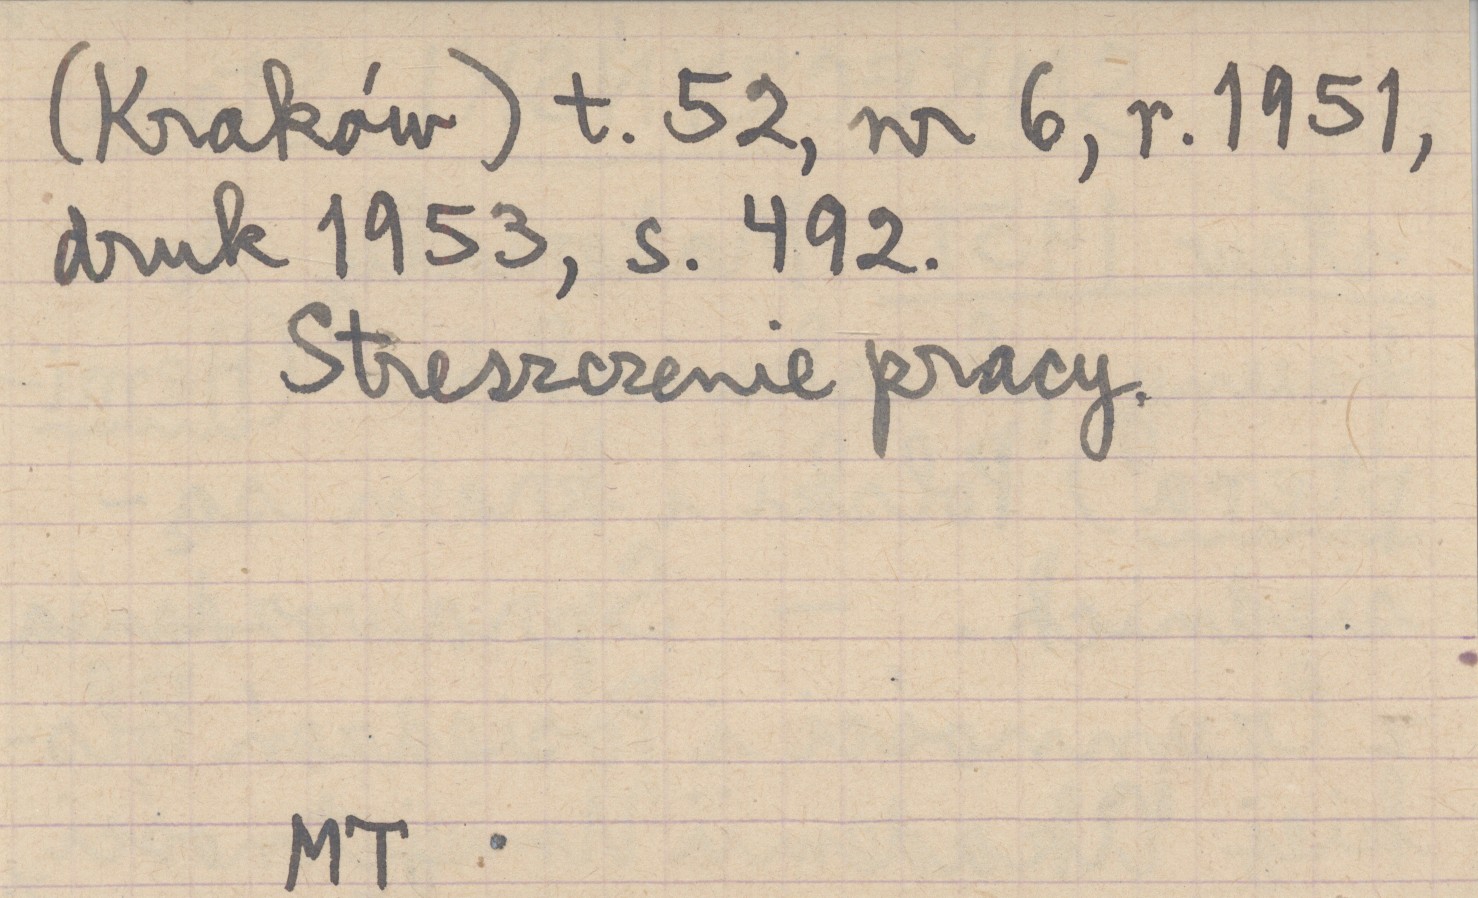 (Kraków) t. 52, nr 6, r. 1951,
druk 1953, s. 492.
Streszczenie pracy.
MT